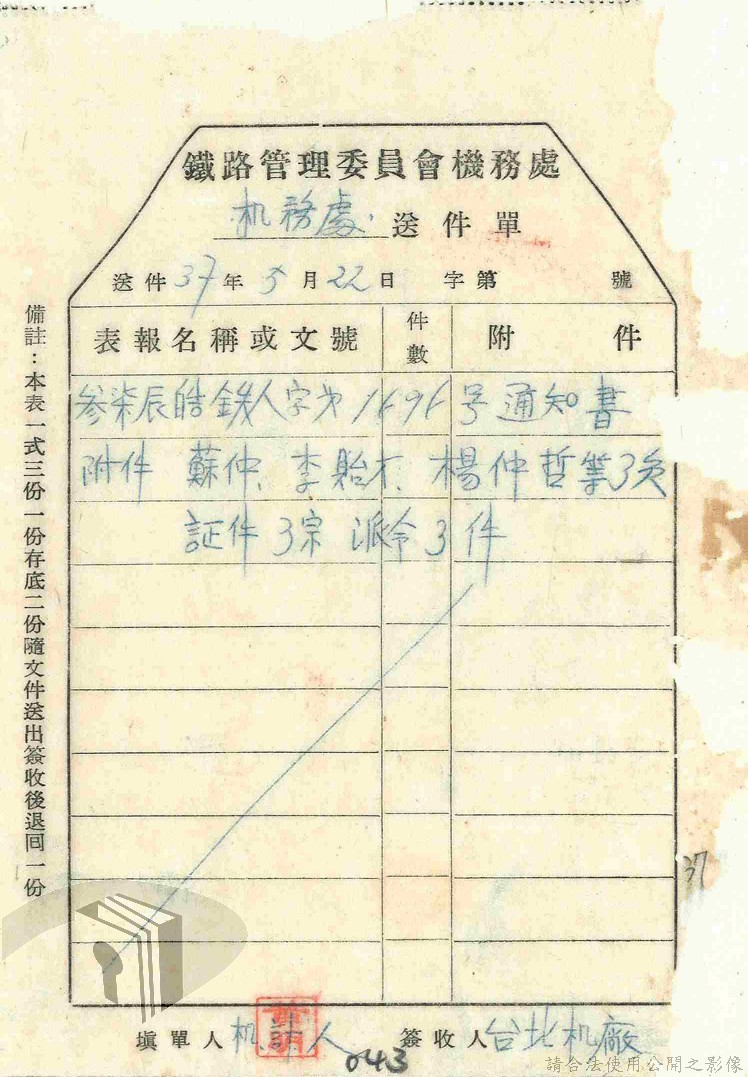 鐵路管理委員會機務處
机務處 送件單
送件37年5月22日 字第 號
表報名稱或文號 件數 附件
參柒辰皓鉄人字第1696号通知書
附件 蘇仲、李貽木、楊仲哲等3員
証件3宗 派令3件
備註：本表一式三份一份存底二份隨文件送出簽收後退回一份
37
填單人 机 人 簽收人 台北机廠
043
請合法使用公開之影像